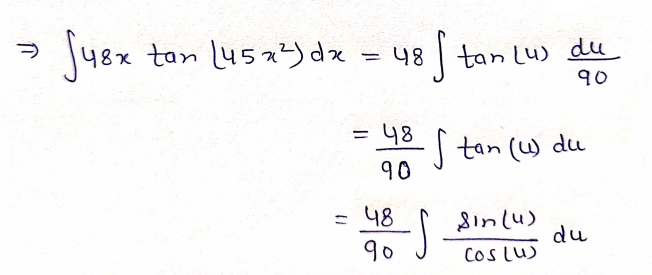 ⇒ ∫48x tan (45x²) dx = 48 ∫ tan (u) du/90
= 48/90 ∫ tan (u) du
= 48/90 ∫ sin(u)/cos(u) du